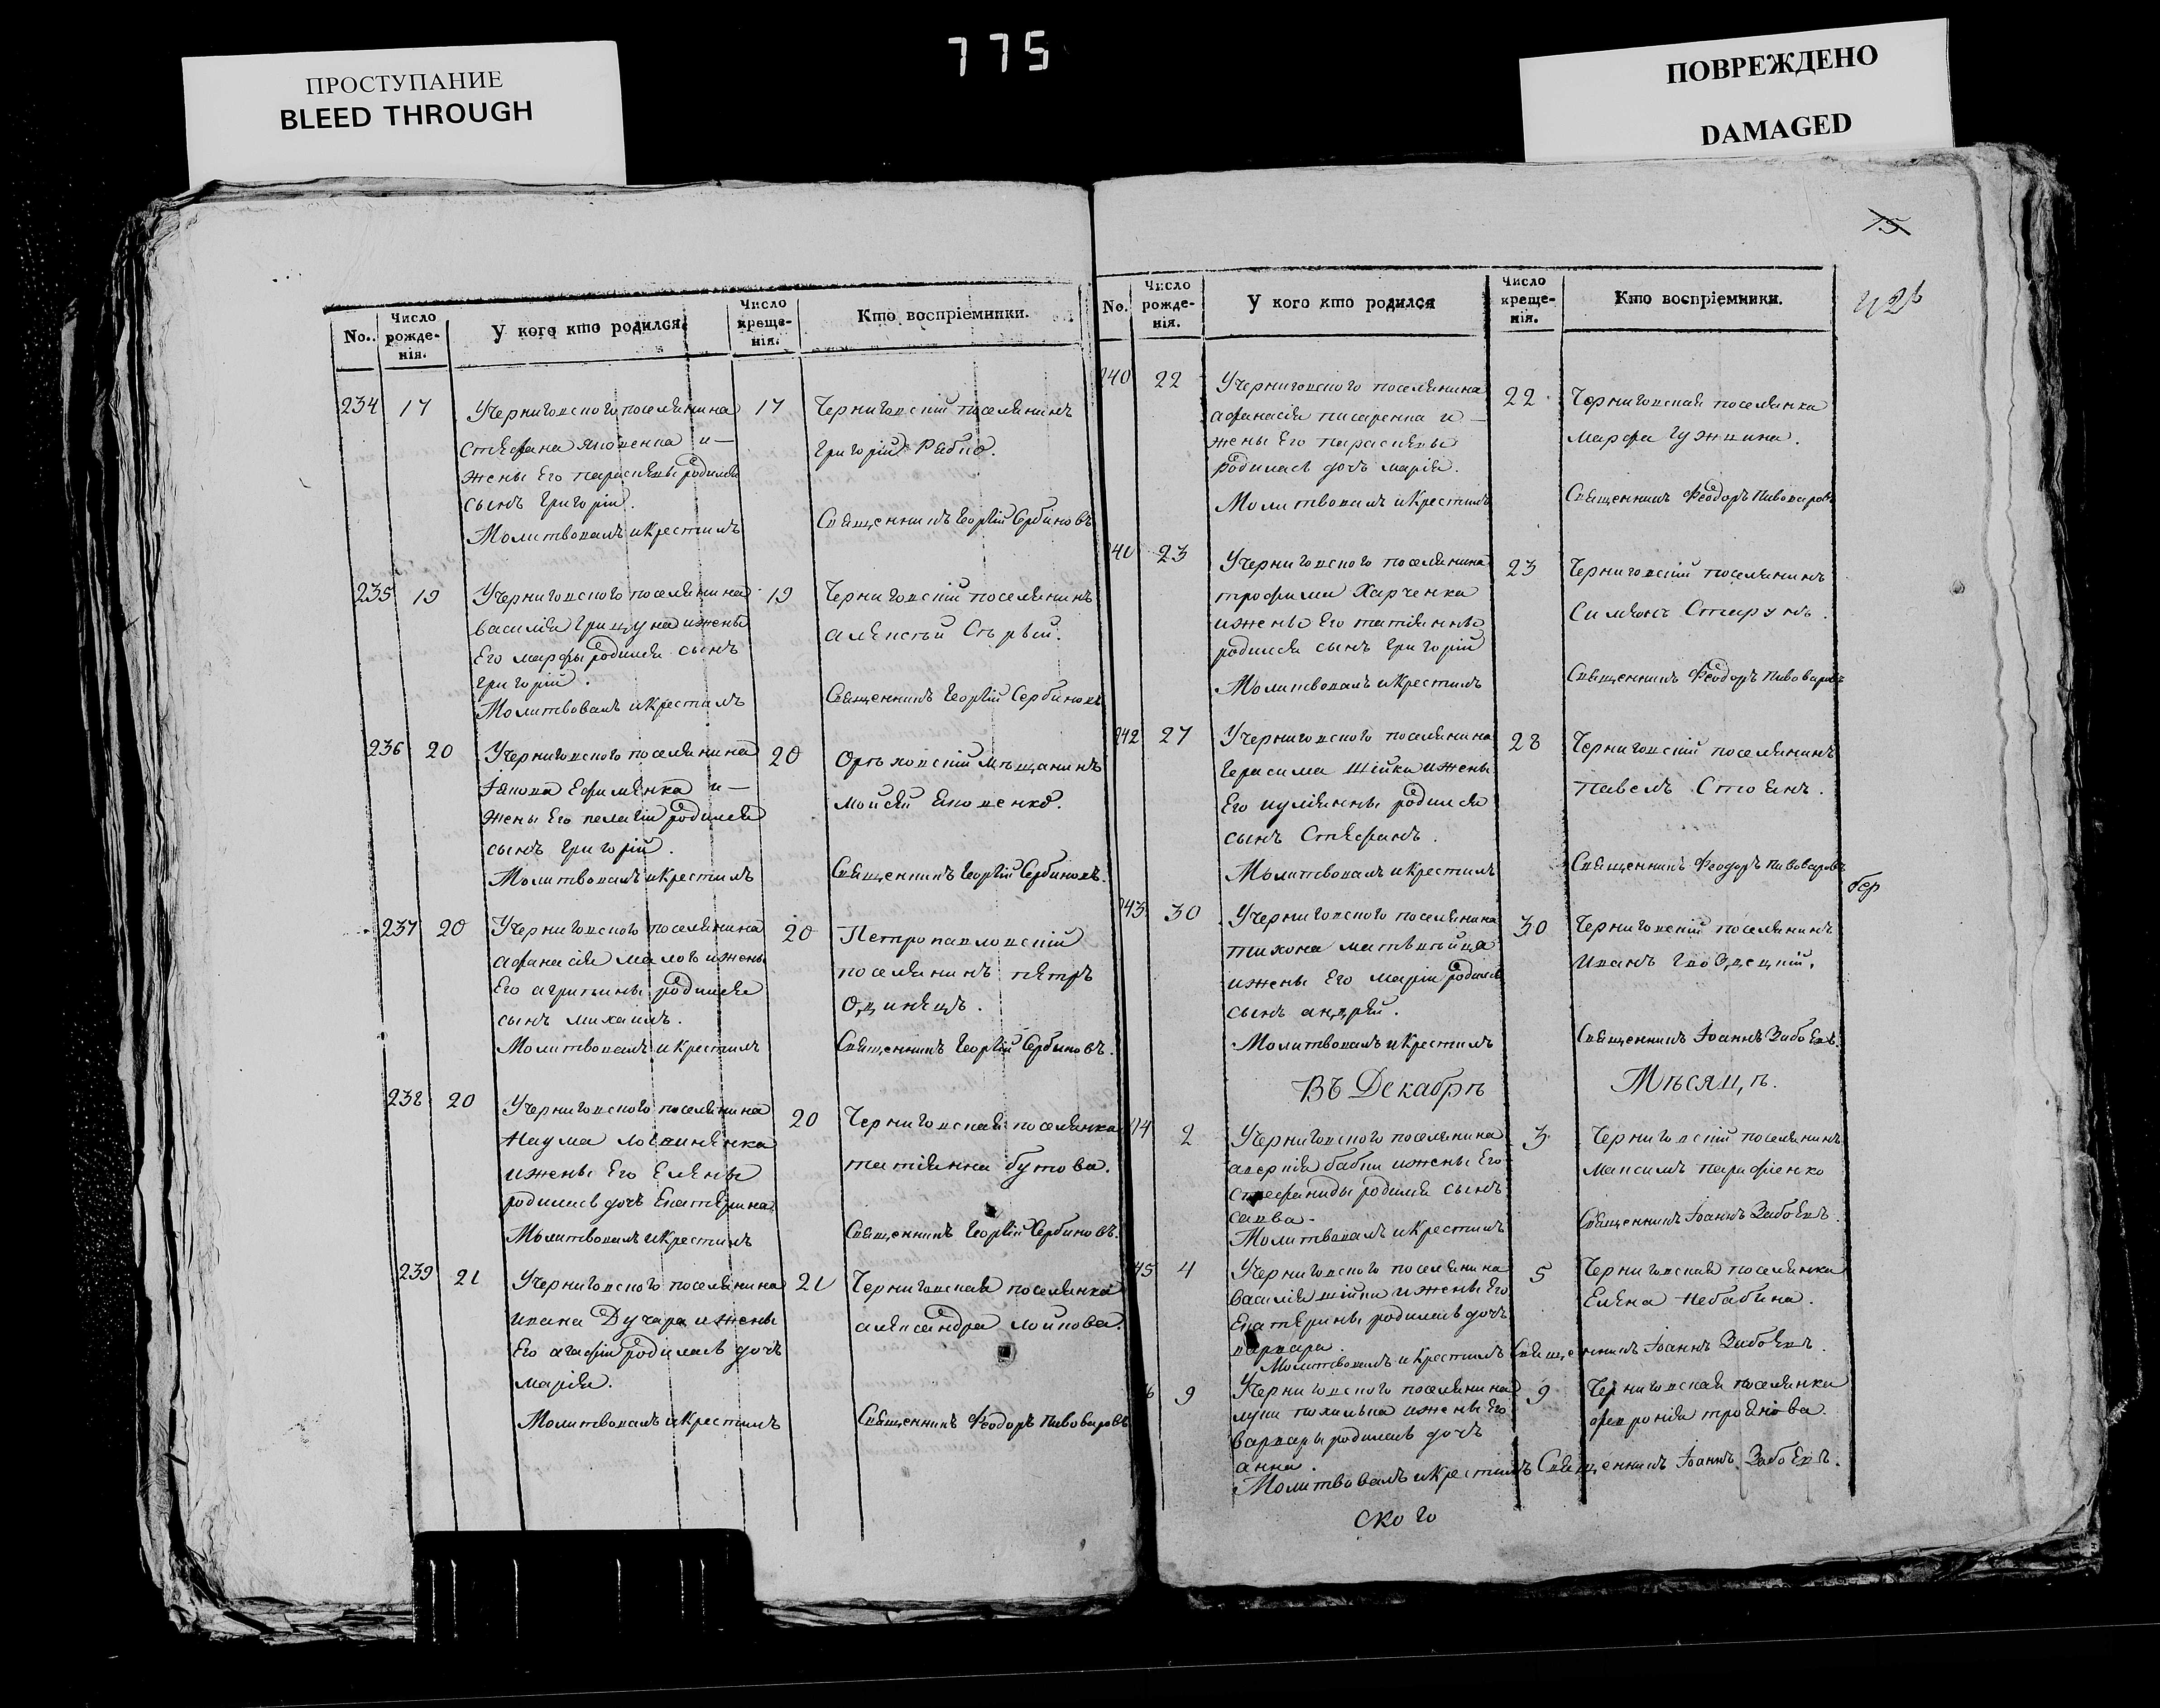 775
ПРОСТУПАНИЕ
BLEED THROUGH
ПОВРЕЖДЕНО
DAMAGED
No. Число рожде-нія. У кого кто родился Число креще-нія. Кто воспріемники.
234 17 У Черниговского поселянина 17 Черниговскій поселянинъ
Стефана Яковенка и
Григорій Рябко.
жены Его Параскевы родился
сынъ Григорій.
Молитвовалъ и Крестилъ Священникъ Георгій Сербиновъ
235 19 У Черниговского поселянина 19 Черниговскій поселянинъ
Василія Грицуна и жены
Алексѣй Сѣрый.
Его Марфы родился сынъ
Григорій.
Молитвовалъ и Крестилъ Священникъ Георгій Сербиновъ
236 20 У Черниговского поселянина 20 Орѣховскій Мѣщанинъ
Іякова Ефименка и
Мойсей Яковенко.
жены Его Пелагіи родился
сынъ Григорій.
Молитвовалъ и Крестилъ Священникъ Георгій Сербиновъ.
237 20 У Черниговского поселянина 20 Петропавловскій
Афанасія Малого и жены
поселянинъ Петръ
Его Агрипины родился
Одинецъ.
сынъ Михаилъ.
Молитвовалъ и Крестилъ Священникъ Георгій Сербиновъ.
238 20 У Черниговского поселянина 20 Черниговская поселянка
Наума Логвиненка
Татіянна Бутова.
и жены Его Елены
родилась дочь Екатерина
Молитвовалъ и Крестилъ Священникъ Георгій Сербиновъ.
239 21 У Черниговского поселянина 21 Черниговская поселянка
Ивана Дучара и жены
Александра Лойкова.
Его Агафіи родилась дочь
Марія.
Молитвовалъ и Крестилъ Священникъ Феодоръ Пивоваровъ
75
No. Число рожде-нія. У кого кто родился Число креще-нія. Кто воспріемники.
240 22 У Черниговского поселянина 22 Черниговская поселянка
Афанасія Писаренка и
Марфа Гужвина.
жены Его Параскевы
родилась дочь Марія.
Молитвовалъ и Крестилъ Священникъ Феодоръ Пивоваровъ
23 У Черниговского поселянина 23 Черниговскій поселянинъ
Трофима Харченка
Симеонъ Старунъ.
и жены Его Татіянны
родился сынъ Григорій
Молитвовалъ и Крестилъ Священникъ Феодоръ Пивоваровъ
242 27 У Черниговского поселянина 28 Черниговскій поселянинъ
Герасима Шійки и жены
Павелъ Стоянъ.
Его Иуліянны родился
сынъ Стефанъ.
Молитвовалъ и Крестилъ Священникъ Феодоръ Пивоваровъ
243 30 У Черниговского поселянина 30 Черниговскій поселянинъ
Тихона Матвѣйца
Иванъ Гвоздецкій.
и жены Его Маріи родился
сынъ Андрей.
Молитвовалъ и Крестилъ Священникъ Іоаннъ Забоевъ.
Въ Декабрѣ Мѣсяцѣ.
44 2 У Черниговского поселянина 3 Черниговскій поселянинъ
Аверкія Бабки и жены Его
Максимъ Парафіенко
Стефаниды родился сынъ
Савва.
Молитвовалъ и Крестилъ Священникъ Іоаннъ Забоевъ.
45 4 У Черниговского поселянина 5 Черниговская поселянка
Василія Шійки и жены Его
Елена Небабина.
Екатерины родилась дочь
Варвара.
Молитвовалъ и Крестилъ Священникъ Іоаннъ Забоевъ.
6 9 У Черниговского поселянина 9 Черниговская поселянка
Луки Похилька и жены Его
Февронія Троянова.
Варвары родилась дочь
Анна.
Молитвовалъ и Крестилъ Священникъ Іоаннъ Забоевъ.
ского
бер